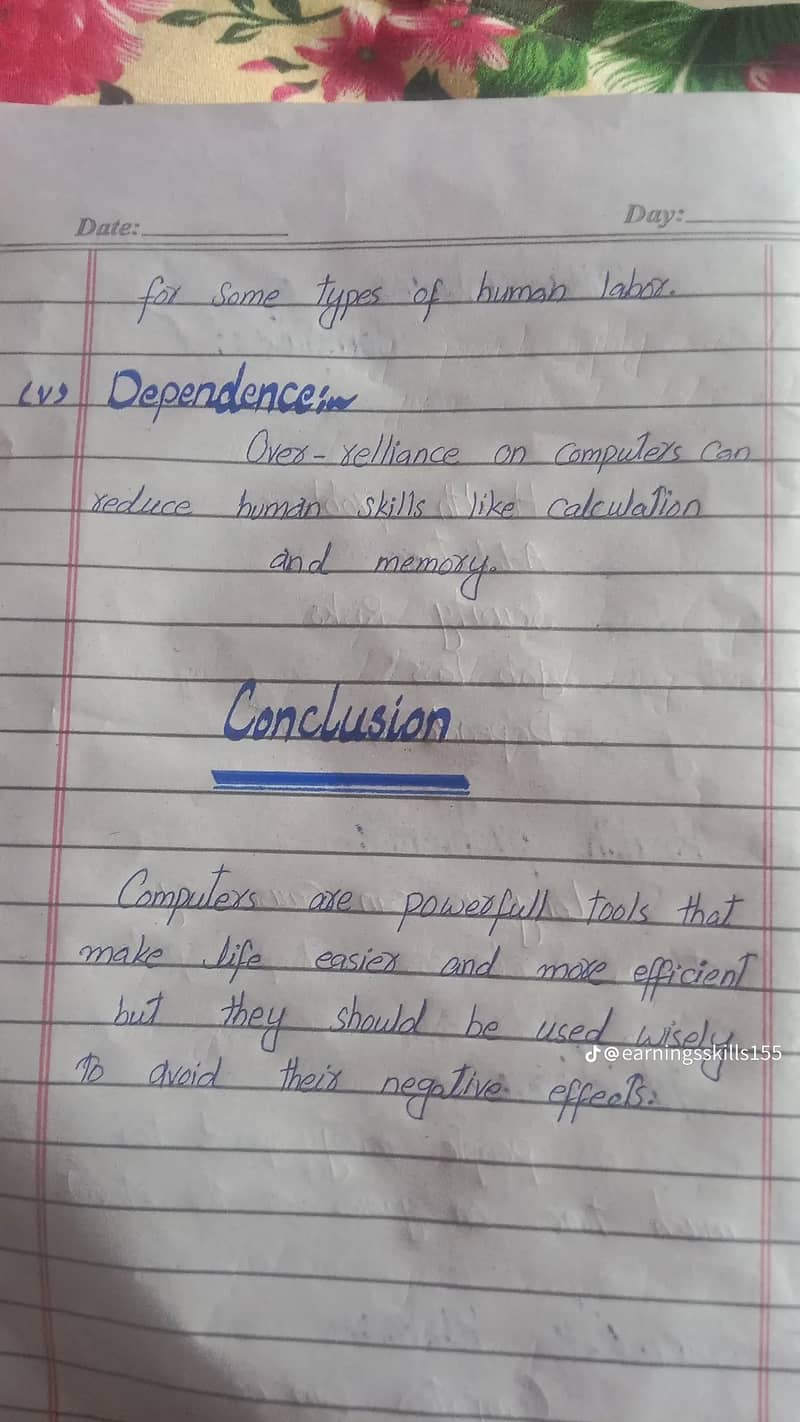 Date:
Day:
for some types of human labor.
(v) Dependence:~
Over-relliance on computers can
reduce human skills like calculation
and memory.
Conclusion
Computers are powerfull tools that
make life easier and more efficient
but they should be used wisely
@earningsskills155
to avoid their negative effects.